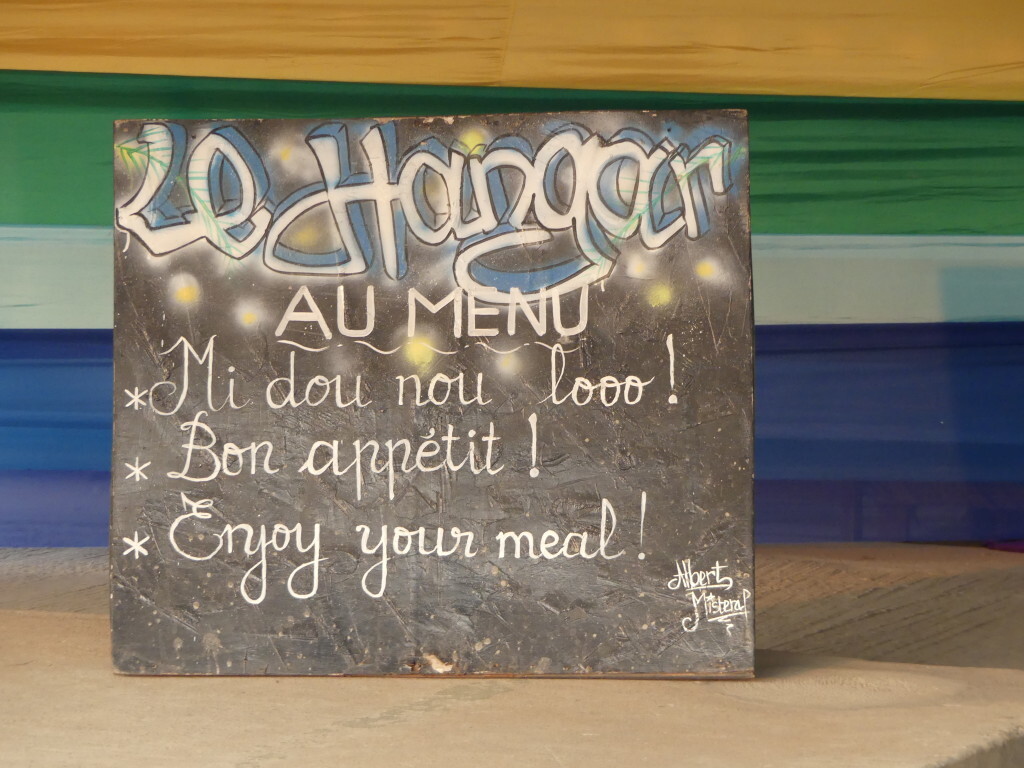 Le Hangar
AU MENU
*Mi dou nou looo !
* Bon appétit !
* Enjoy your meal !
Albert
Misteral